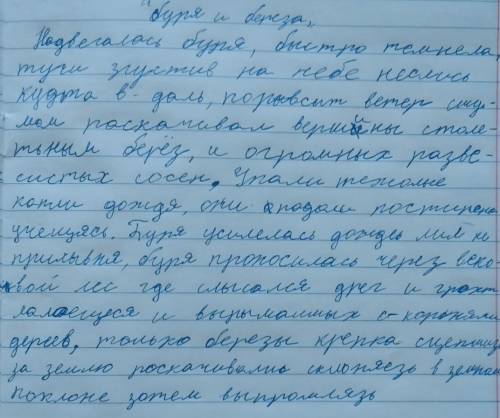 "Буря и береза.
Надвегалась буря, быстро темнела,
тучи згустив на небе неслись
куда в-даль, порывсыт ветер шу-
мом раскачивал вершины столе-
тьным берёз, и огромных разве-
систых сосен. Упали тежолые
капли дождя, они падали постипено
учещясь. Буря усилелась дождь лил не
прилывня, буря проносилась через веко-
вой лес где слысался дрег и грохт
ламоещеся и вырыманных с-короняли
дерев, только березы крепка сцепившь
за землю роскачивалис склоняезь в земном
поклоне зотем выпромлязь